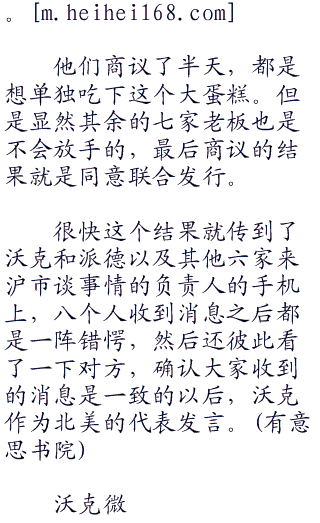 。[m.heihei168.com]
他们商议了半天，都是
想单独吃下这个大蛋糕。但
是显然其余的七家老板也是
不会放手的，最后商议的结
果就是同意联合发行。
很快这个结果就传到了
沃克和派德以及其他六家来
沪市谈事情的负责人的手机
上，八个人收到消息之后都
是一阵错愕，然后还彼此看
了一下对方，确认大家收到
的消息是一致的以后，沃克
作为北美的代表发言。(有意
思书院)
沃克微